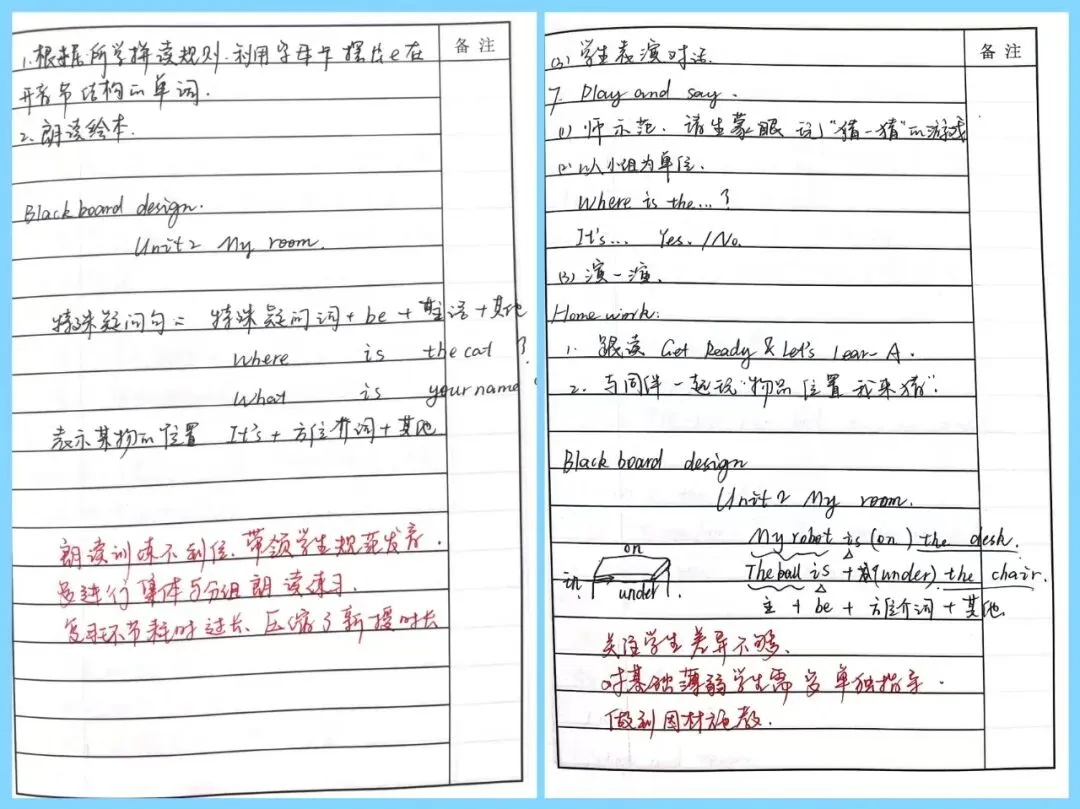 备注
1.根据所学拼读规则.利用字母卡摆出e在
开音节结构的单词.
2.朗读绘本.
Blackboard design.
Unit2 My room.
特殊疑问句: 特殊疑问词+be+主语+其他
Where is the cat?
What is your name?
表示某物的位置 It's+方位介词+其他
朗读训练不到位.带领学生规范发音.
多进行集体与分组朗读练习.
复习环节耗时过长、压缩了新授时长
备注
(3)学生表演对话.
7. Play and say.
(1)师示范.请生蒙眼玩"猜一猜"的游戏
(2)以小组为单位.
Where is the...?
It's... Yes./No.
(3)演一演.
Homework:
1. 跟读 Get Ready & Let's lear A.
2. 与同伴一起玩"物品位置我来猜".
Blackboard design
Unit2 My room.
on
in under
My robot is (on) the desk.
The ball is + (under) the chair.
主+be+方位介词+其他.
关注学生差异不够.
对基础薄弱学生需多单独指导.
做到因材施教.